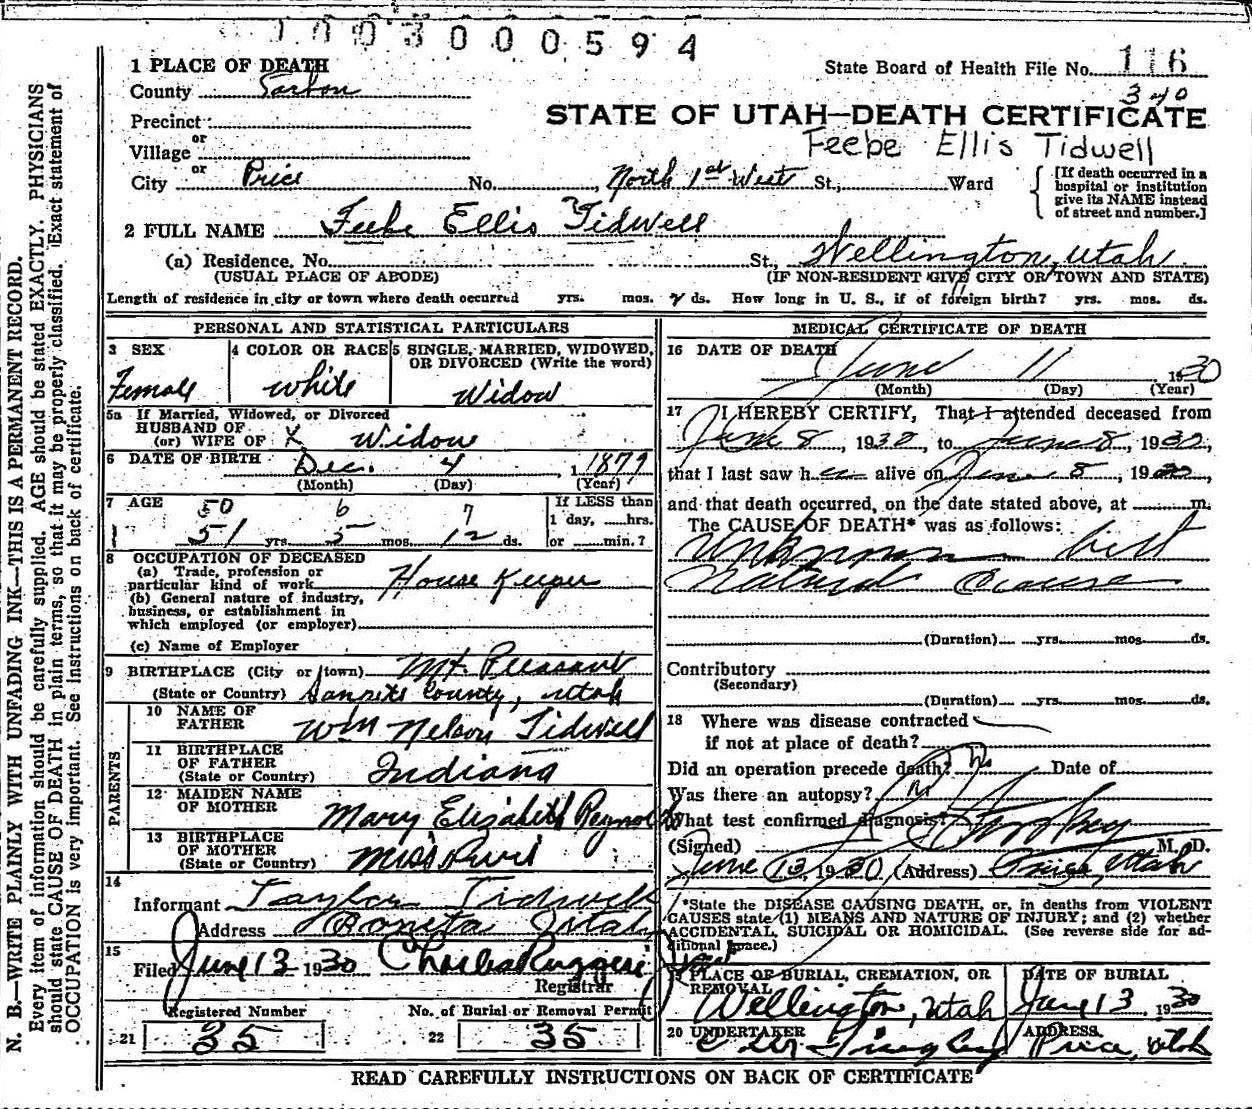 1003000594
1 PLACE OF DEATH
State Board of Health File No. 116
County Carbon
340
STATE OF UTAH—DEATH CERTIFICATE
Precinct
or
Village
Feebe Ellis Tidwell
or
City Price No. , North 1st West St., Ward
[If death occurred in a
hospital or institution
give its NAME instead
of street and number.]
2 FULL NAME Feebe Ellis Tidwell
(a) Residence. No. St., Wellington, Utah
(USUAL PLACE OF ABODE) (IF NON-RESIDENT GIVE CITY OR TOWN AND STATE)
Length of residence in city or town where death occurred yrs. mos. ds. How long in U. S., if of foreign birth? yrs. mos. ds.
PERSONAL AND STATISTICAL PARTICULARS
3 SEX
Female
4 COLOR OR RACE
White
5 SINGLE, MARRIED, WIDOWED,
OR DIVORCED (Write the word)
Widow
5a If Married, Widowed, or Divorced
HUSBAND OF
(or) WIFE OF X Widow
6 DATE OF BIRTH Dec. 4, 1879
(Month) (Day) (Year)
7 AGE 50 6 7
51 yrs. 5 mos. 12 ds.
If LESS than
1 day, hrs.
or min.?
8 OCCUPATION OF DECEASED
(a) Trade, profession or
particular kind of work House Keeper
(b) General nature of industry,
business, or establishment in
which employed (or employer)
(c) Name of Employer
9 BIRTHPLACE (City or town) Mt. Pleasant
(State or Country) Sanpete County, Utah
PARENTS
10 NAME OF
FATHER Wm Nelson Tidwell
11 BIRTHPLACE
OF FATHER
(State or Country) Indiana
12 MAIDEN NAME
OF MOTHER Mary Elizabeth Reynolds
13 BIRTHPLACE
OF MOTHER
(State or Country)
14
Informant Taylor Tidwell
Address Utah
15
Filed June 13 1930 Charles Ruggeri
Registrar
Registered Number No. of Burial or Removal Permit
21 35 22 35
MEDICAL CERTIFICATE OF DEATH
16 DATE OF DEATH
June 11 1930
(Month) (Day) (Year)
17 I HEREBY CERTIFY, That I attended deceased from
June 8, 1930, to June 8, 1930,
that I last saw her alive on June 8, 1930
and that death occurred, on the date stated above, at m.
The CAUSE OF DEATH* was as follows:
Unknown but
Natural Cause
(Duration) yrs. mos. ds.
Contributory
(Secondary)
(Duration) yrs. mos. ds.
18 Where was disease contracted
if not at place of death?
Did an operation precede death? no Date of
Was there an autopsy? no
What test confirmed diagnosis?
(Signed) M. D.
June 13, 1930 (Address) Price, Utah
*State the DISEASE CAUSING DEATH, or, in deaths from VIOLENT
CAUSES state (1) MEANS AND NATURE OF INJURY; and (2) whether
ACCIDENTAL, SUICIDAL OR HOMICIDAL. (See reverse side for ad-
ditional space.)
PLACE OF BURIAL, CREMATION, OR
REMOVAL
Wellington, Utah
DATE OF BURIAL
June 13 1930
20 UNDERTAKER
ADDRESS
Price, Utah
READ CAREFULLY INSTRUCTIONS ON BACK OF CERTIFICATE
N. B.—WRITE PLAINLY WITH UNFADING INK—THIS IS A PERMANENT RECORD.
Every item of information should be carefully supplied. AGE should be stated EXACTLY. PHYSICIANS
should state CAUSE OF DEATH in plain terms, so that it may be properly classified. Exact statement of
OCCUPATION is very important. See instructions on back of certificate.